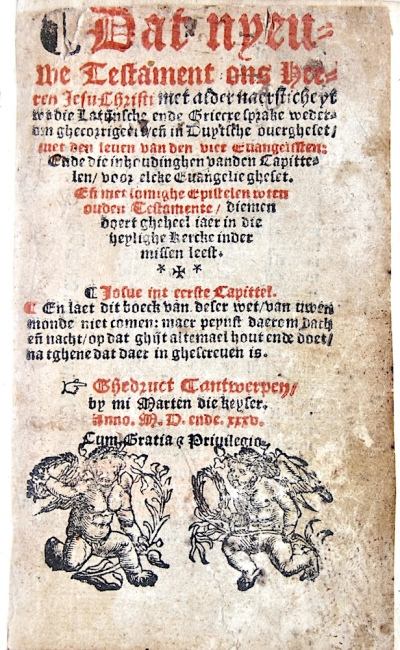 Dat nyeu=
we Testament ons Hee=
ren Jesu Christi met alder naersticheyt
wt die Latijnsche ende Griecxe sprake weder=
om ghecorrigeert/ in Duytsche ouerghesett/
met den leuen van den vier Euangelisten:
Ende die inhoudinghen vanden Capitte=
len/ voor elcke Euangelie gheset.
Eñ met somighe Epistelen wten
ouden Testamente/ diemen
doert gheheel iaer in die
heylighe Kercke inder
missen leest.
* ✠ *
¶ Josue int eerste Capittel.
¶ En laet dit boeck van deser wet/ van uwen
monde niet comen: maer peynst daerom dach
eñ nacht/ op dat ghijt altemael hout ende doet/
na tghene dat daer in ghescreuen is.
☞ Ghedruct Tantwerpen/
by mi Marten die keyser.
Anno. M. D. ende. xxxv.
Cum Gratia & Priuilegio.